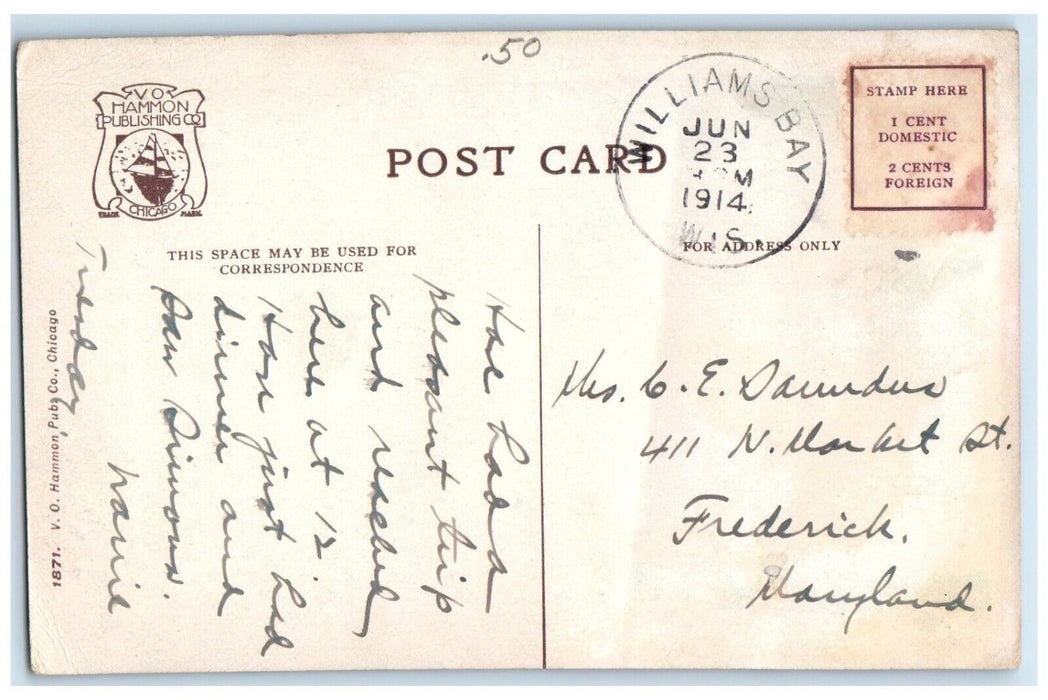 .50
V O
HAMMON
PUBLISHING CO
CHICAGO
TRADE MARK
POST CARD
WILLIAMS BAY
JUN
23
M
1914
WIS.
STAMP HERE
1 CENT
DOMESTIC
2 CENTS
FOREIGN
THIS SPACE MAY BE USED FOR
CORRESPONDENCE
FOR ADDRESS ONLY
Have had a
pleasant trip
and reached
here at 12.
Have just had
dinner and
saw Simons.
Tuesday
Mrs. C. E. Saunders
411 N. Market St.
Frederick.
Maryland.
1871. V. O. Hammon Pub. Co., Chicago